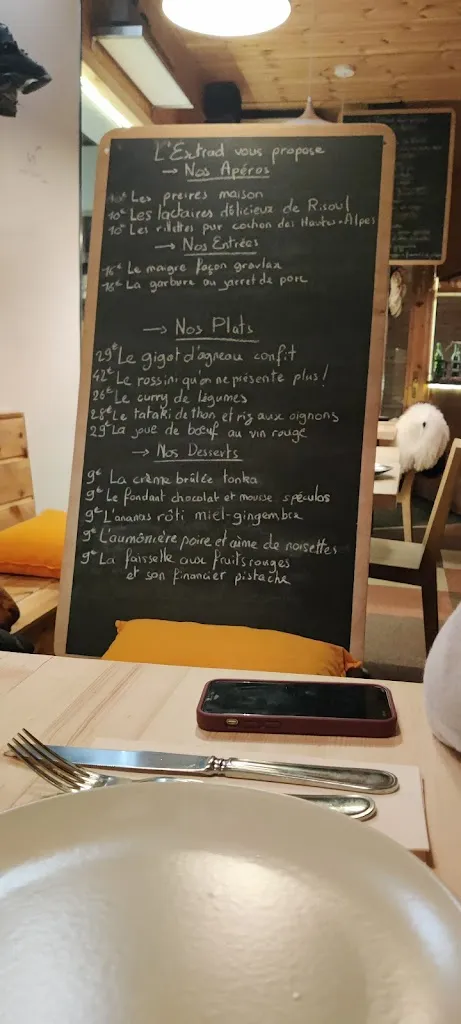 L'Extrad vous propose
→ Nos Apéros
10€ Les preires maison
10€ Les lactaires délicieux de Risoul
10€ Les rillettes pur cochon des Hautes-Alpes
→ Nos Entrées
16€ Le maigre façon gravlax
16€ La garbure au jarret de porc
→ Nos Plats
29€ Le gigot d'agneau confit
42€ Le rossini qu'on ne présente plus!
26€ Le curry de légumes
28€ Le tataki de thon et riz aux oignons
29€ La joue de bœuf au vin rouge
→ Nos Desserts
9€ La crème brûlée tonka
9€ Le fondant chocolat et mousse spéculos
9€ L'ananas rôti miel-gingembre
9€ L'aumônière poire et crème de noisettes
9€ La faisselle aux fruits rouges
et son financier pistache